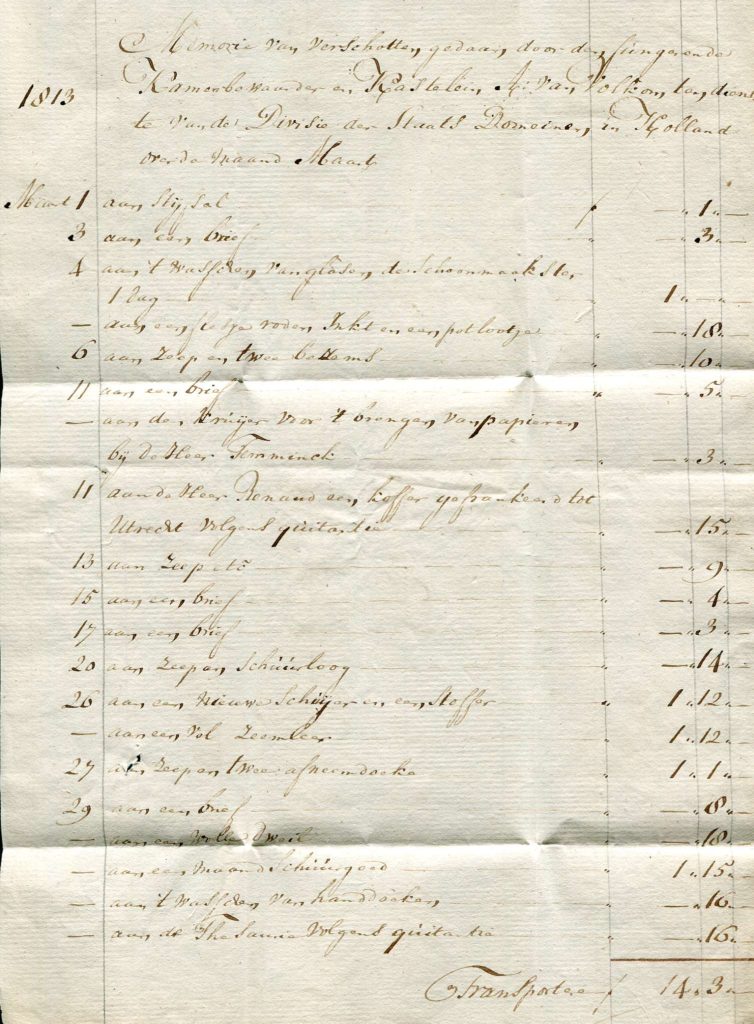 Memorie van verschotten, gedaan, door den fungerende
1813 Kamerbewaarder en Kastelein A: van Volkom, ten diens
te van de Divisie der Staats Domeinen, in Holland
over de maand Maart
Maart 1 aan Stijfsel — f — „ 1 „ —
3 aan een brief — „ — „ 3 „ —
4 aan 't wasschen, van glasen, de Schoonmaakster
1 dag — „ 1 „ — „ —
— aan een flesje roden Inkt en een potlootje „ — „ 18 „ —
6 aan Zeep en twee bezems „ — „ 10 „ —
11 aan een brief — „ — „ 5 „ —
— aan den Kruijer voor 't brengen, van papieren,
bij de Heer Temminck — „ — „ 3 „ —
11 aan de Heer Renaud een koffer gefrankeerd tot
Utrecht volgens quitantie — „ — „ 15 „ —
13 aan Zeep etc — „ — „ 9 „ —
15 aan een brief — „ — „ 4 „ —
17 aan een brief — „ — „ 3 „ —
20 aan Zeep en Schuurloog — „ — „ 14 „ —
26 aan een nieuwe Schuijer en een Stoffer „ 1 „ 12 „ —
— aan een Vel Zeemleer — „ 1 „ 12 „ —
27 aan Zeep en twee afneemdoeke „ 1 „ 1 „ —
29 aan een brief — „ — „ 8 „ —
— aan een wolle Dweil — „ — „ 18 „ —
— aan een maand Schuurgoed — „ 1 „ 15 „ —
— aan 't wasschen van handdoeken, „ — „ 16 „ —
— aan de Thesaurie volgens quitantie „ — „ 16 „ —
Transportere f 14 „ 3 „ —